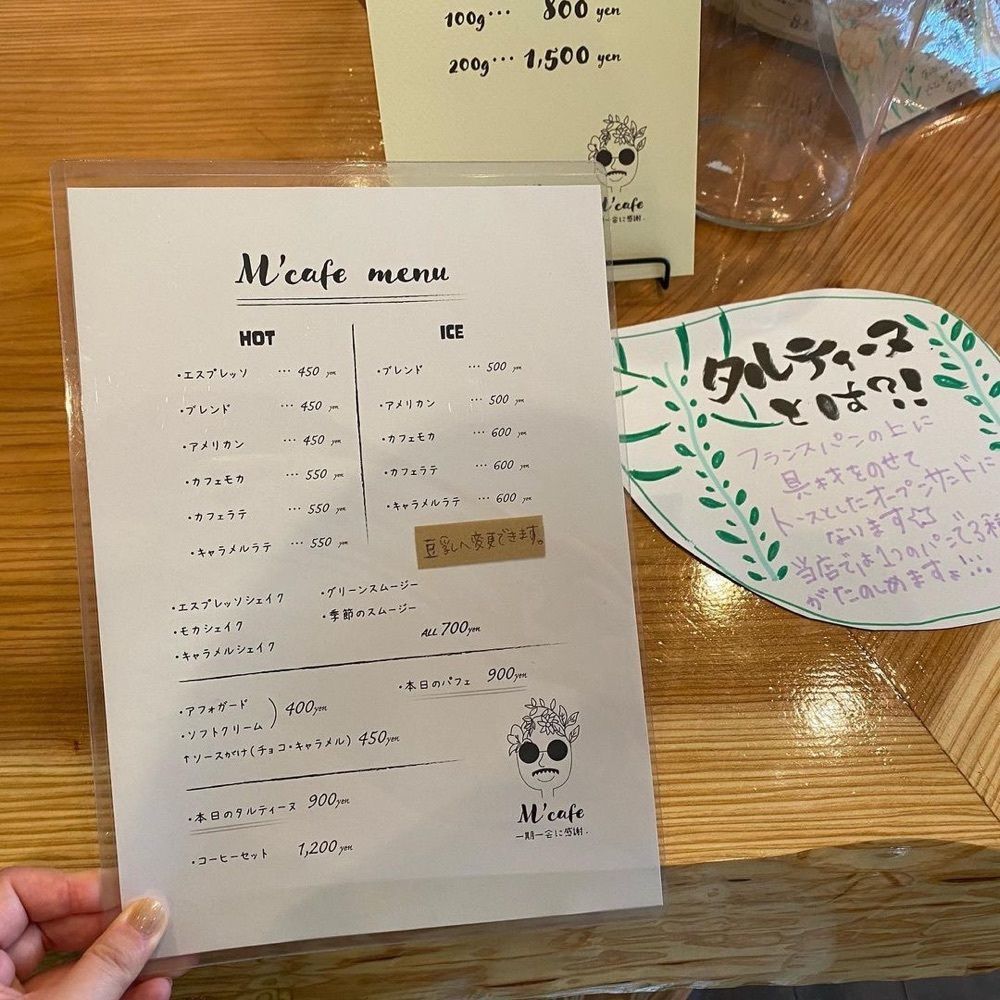 100g… 800 yen
200g… 1,500 yen
M'cafe
一会に感謝.
M'cafe menu
HOT
・エスプレッソ … 450 yen
・ブレンド … 450 yen
・アメリカン … 450 yen
・カフェモカ … 550 yen
・カフェラテ … 550 yen
・キャラメルラテ … 550 yen
ICE
・ブレンド … 500 yen
・アメリカン … 500 yen
・カフェモカ … 600 yen
・カフェラテ … 600 yen
・キャラメルラテ … 600 yen
豆乳へ変更できます。
・エスプレッソシェイク
・モカシェイク
・キャラメルシェイク
・グリーンスムージー
・季節のスムージー
ALL 700yen
・アフォガード
・ソフトクリーム) 400yen
↑ソースがけ(チョコ・キャラメル) 450yen
・本日のパフェ 900yen
・本日のタルティーヌ 900yen
・コーヒーセット 1,200yen
M'cafe
一期一会に感謝.
タルティーヌ
とは?!
フランスパンの上に
具材をのせて
トーストしたオープンサンドに
なります☆
当店では1つのパンで3種
がたのしめますよ!!!